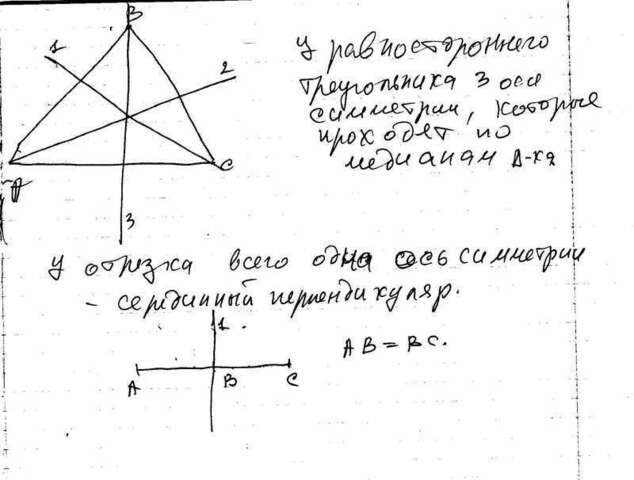 B
1
2
A
C
3
У равностороннего
треугольника 3 оси
симметрии, которые
проходят по
медианам Δ-ка
У отрезка всего одна ось симметрии
- серединный перпендикуляр.
1
AB = BC.
A
B
C